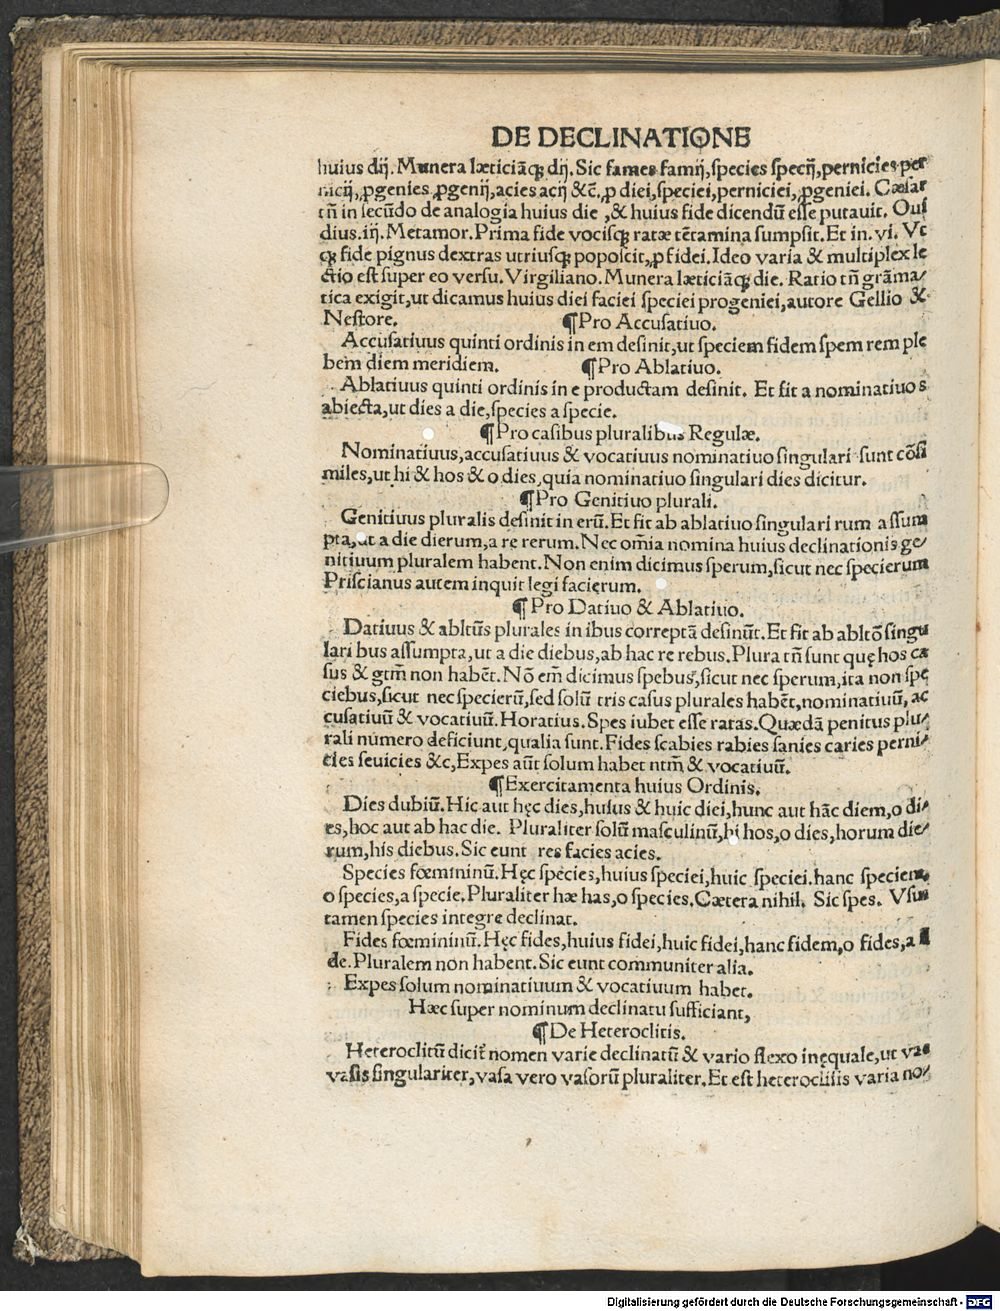 DE DECLINATIONE
huius dij. Munera læticiāqꝫ dij. Sic fames famij, species specij, pernicies per
nicij, ꝓgenies ꝓgenij, acies acij &c̄. ꝓ diei, speciei, perniciei, ꝓgeniei. Cæsar
tn̄ in secūdo de analogia huius die, & huius fide dicendū esse putauit. Oui
dius. iij. Metamor. Prima fide vocisqꝫ ratæ tētamina sumpsit. Et in. vi. Vt
qꝫ fide pignus dextras utriusqꝫ poposcit, ꝓ fidei. Ideo varia & multiplex le
ctio est super eo versu. Virgiliano. Munera læticiāqꝫ die. Ratio tn̄ grāma⸗
tica exigit, ut dicamus huius diei faciei speciei progeniei, autore Gellio &
Nestore. ¶Pro Accusatiuo.
Accusatiuus quinti ordinis in em desinit, ut speciem fidem spem rem ple
bem diem meridiem. ¶Pro Ablatiuo.
Ablatiuus quinti ordinis in e productam desinit. Et fit a nominatiuo s
abiecta, ut dies a die, species a specie.
¶Pro casibus pluralibus Regulæ.
Nominatiuus, accusatiuus & vocatiuus nominatiuo singulari sunt cōsi
miles, ut hi & hos & o dies, quia nominatiuo singulari dies dicitur.
¶Pro Genitiuo plurali.
Genitiuus pluralis desinit in erū. Et fit ab ablatiuo singulari rum assum
pta, ut a die dierum, a re rerum. Nec om̄ia nomina huius declinationis ge⸗
nitiuum pluralem habent. Non enim dicimus sperum, sicut nec specierum
Priscianus autem inquit legi facierum.
¶Pro Datiuo & Ablatiuo.
Datiuus & abltūs plurales in ibus correptā desinūt. Et fit ab abltō singu
lari bus assumpta, ut a die diebus, ab hac re rebus. Plura tn̄ sunt quę hos ca
sus & gtm̄ non habēt. Nō em̄ dicimus spebus, sicut nec sperum, ita non spe
ciebus, sicut nec specierū, sed solū tris casus plurales habēt, nominatiuū, ac
cusatiuū & vocatiuū. Horatius. Spes iubet esse ratas. Quædā penitus plu⸗
rali numero deficiunt, qualia sunt. Fides scabies rabies sanies caries perni⸗
cies seuicies &c, Expes aūt solum habet ntm̄ & vocatiuū.
¶Exercitamenta huius Ordinis.
Dies dubiū. Hic aut hęc dies, huius & huic diei, hunc aut hāc diem, o di⸗
es, hoc aut ab hac die. Pluraliter solū masculinū, hi hos, o dies, horum die⸗
rum, his diebus. Sic eunt res facies acies.
Species fœmininū. Hęc species, huius speciei, huic speciei. hanc speciem,
o species, a specie. Pluraliter hæ has, o species. Cætera nihil. Sic spes. Vsus
tamen species integre declinat.
Fides fœmininū. Hęc fides, huius fidei, huic fidei, hanc fidem, o fides, a
de. Pluralem non habent. Sic eunt communiter alia.
Expes solum nominatiuum & vocatiuum habet.
Hæc super nominum declinatu sufficiant,
¶De Heteroclitis.
Heteroclitū dicit᷑ nomen varie declinatū & vario flexo inęquale, ut vas
vasis singulariter, vasa vero vasorū pluraliter. Et est heteroclisis varia no⸗
Digitalisierung gefördert durch die Deutsche Forschungsgemeinschaft - DFG